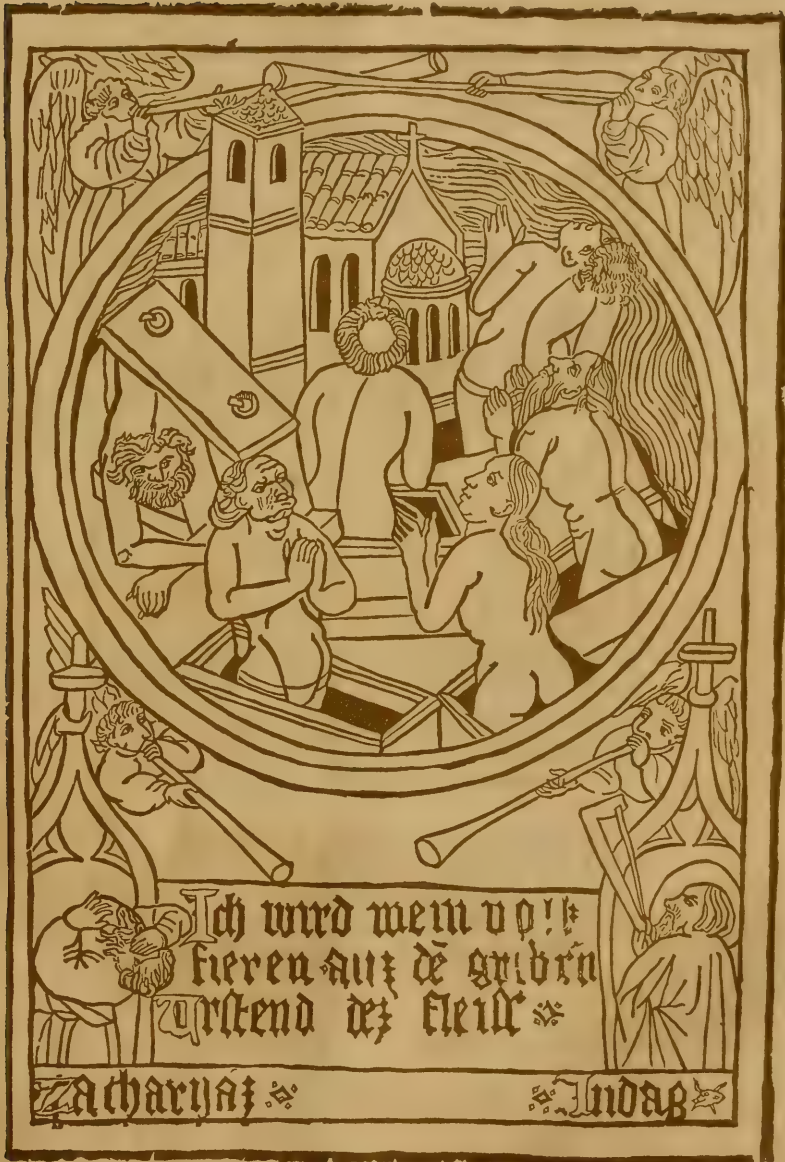 Ich wird mein volk
fieren auz dē gribrn
Urstend dez fleisc
Zacharyaz Iudas